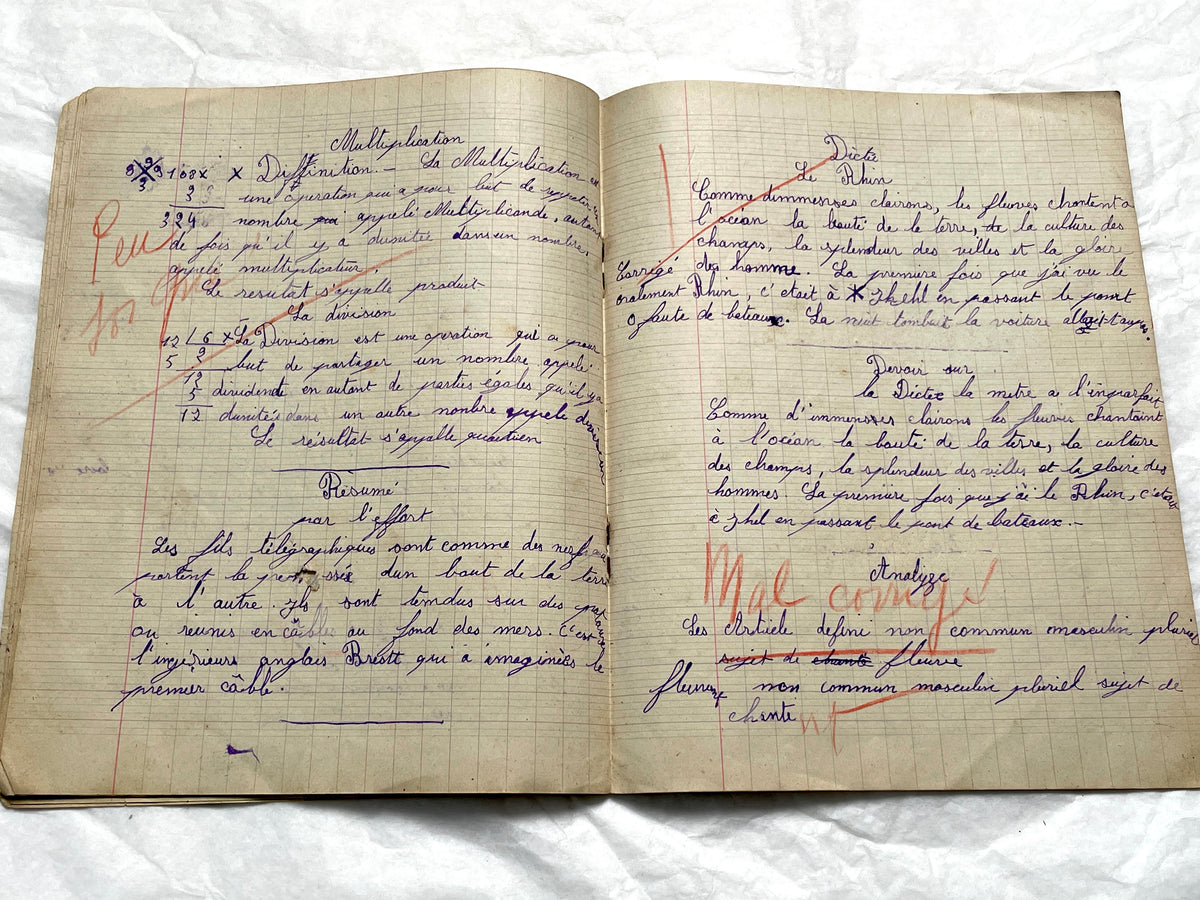 Multiplication
108 x x Diffinition. - La Multiplication est
3 une opération qui a pour but de
324 nombre appelé Multiplicande, autant
de fois qu'il y a dunitée dans un nombre,
appelé multiplicateur
Le resultat s'appelle produit
La division
12 6 x La Division est une operation qui a pour
5 2 but de partager un nombre appelé
12
5 dividende en autant de parties égales qu'il y a
12 dunités dans un autre nonbre appele
Le résultat s'appelle quautien
Peu
Résumé
par l'effort
Les fils télégraphiques sont comme des nerfs qui
portent la d'un baut de la terre
à l'autre. Ils sont tendus sur des
ou reunis en câbles au fond des mers. C'est
l'ingénieurs anglais Brett qui à imaginèes le
premier câble.
Dictée
Le Rhin
Comme dimmenses clairons, les fleuves chantent a
l'océan la bauté de le terre, de la culture des
champs, la splendeur des villes et la gloir
Corrigé des homme. La première fois que j'ai vu le
oralement Rhin, c'etait à Khehl en passant le pont
0 faute de bateaux. La nuit tombait la voiture
Devoir sur
la Dictée la metre a l'inparfait
Comme d'immenses clairons les fleuves chantaint
à l'océan la bauté de la terre, la culture
des champs, la splendeur des villes et la gloire des
hommes. La première fois que j'ai le Rhin, c'etait
à Khel en passant le pont de bateaux. -
Analyze
Mal corrigé
Les Article defini non commun masculin pluriel
sujet de chante fleuve
fleuves non commun masculin pluriel sujet de
chantent